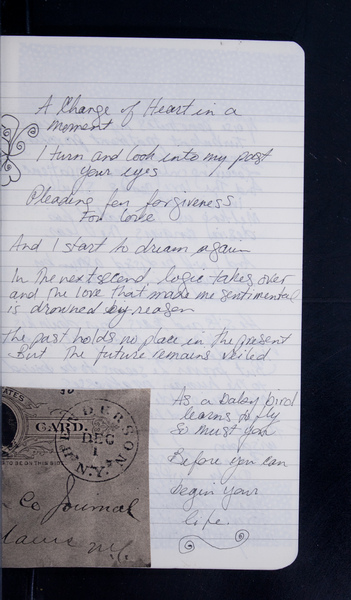 A Change of Heart in a
moment
I turn and look into my past
your eyes
Pleading for forgiveness
For love
And I start to dream again
In the next second, logic takes over
and the love that made me sentimental
is drowned by reason
the past holds no place in the present
But the future remains veiled
As a baby bird
learns to fly
So must you
Before you can
begin your
life.
ATES
CARD.
TO BE ON THIS SIDE
HENDERSON
DEC
1
N.Y.
& Co Journal